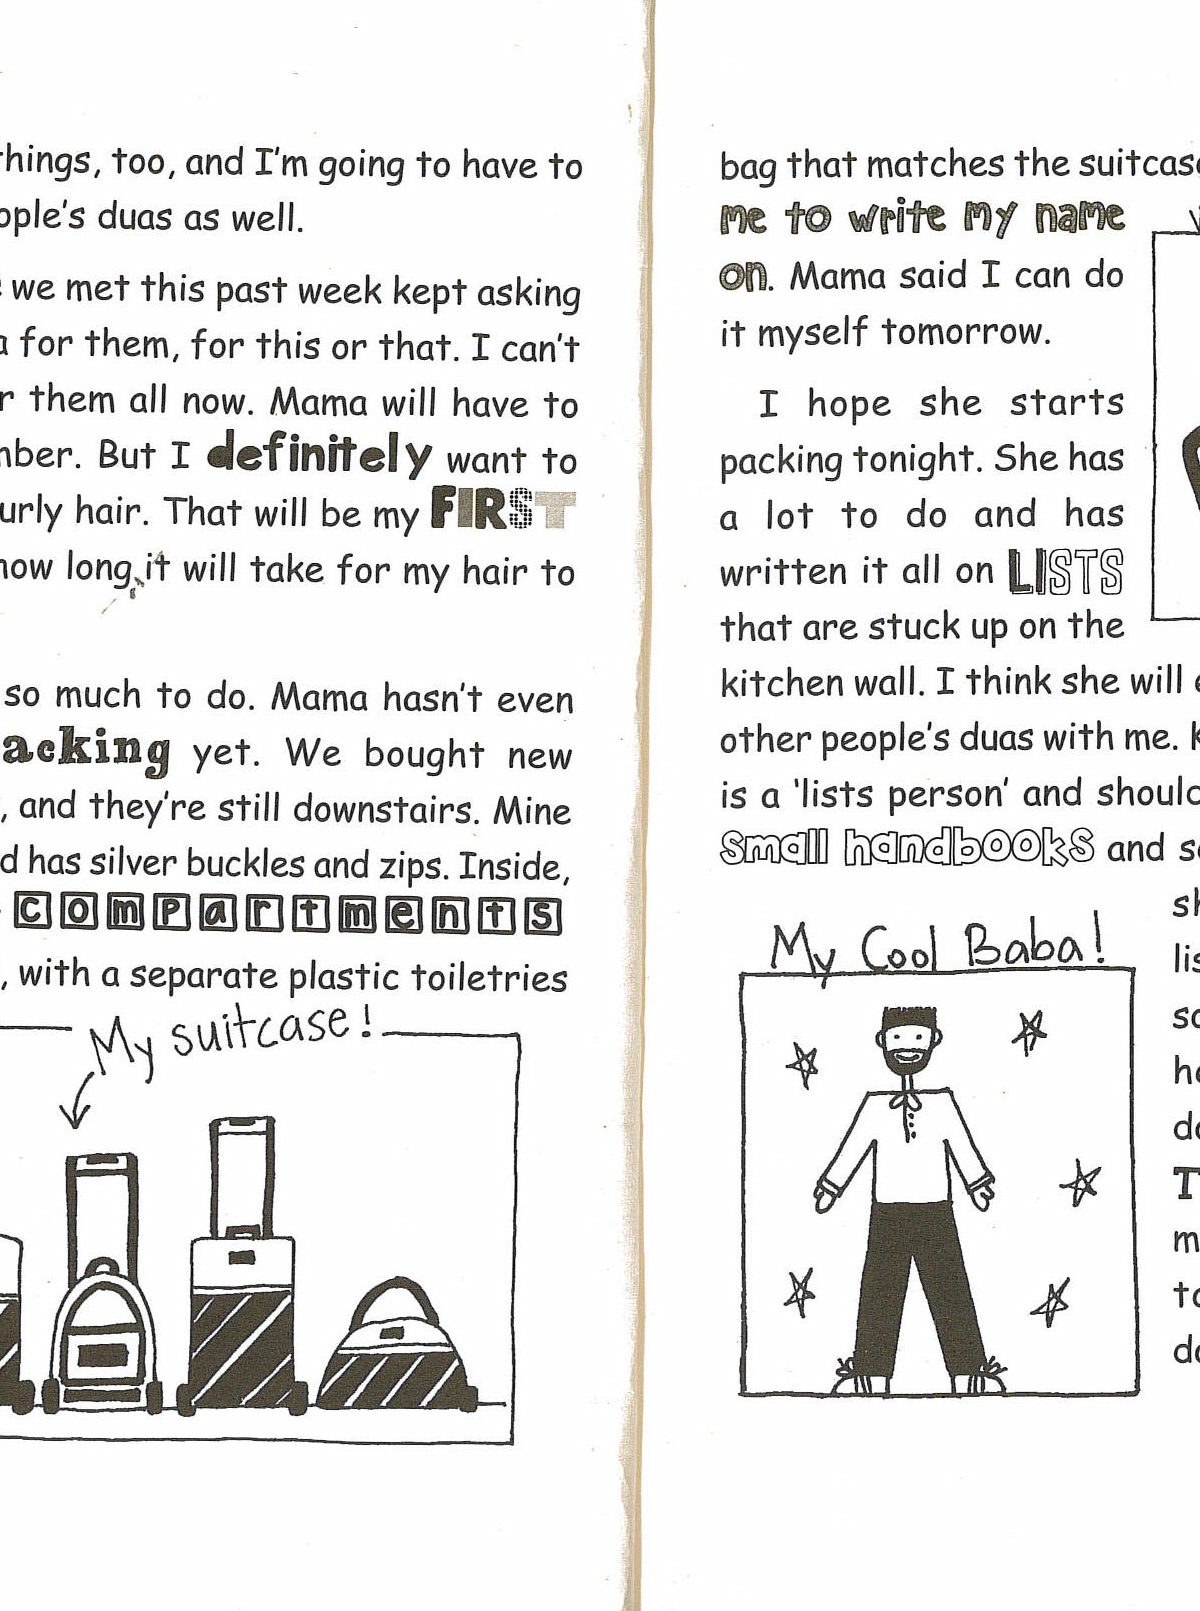 things, too, and I'm going to have to
ople's duas as well.
we met this past week kept asking
a for them, for this or that. I can't
r them all now. Mama will have to
mber. But I definitely want to
urly hair. That will be my FIRST
how long it will take for my hair to
so much to do. Mama hasn't even
acking yet. We bought new
, and they're still downstairs. Mine
d has silver buckles and zips. Inside,
compartments
, with a separate plastic toiletries
My suitcase!
bag that matches the suitcase
me to write my name
on. Mama said I can do
it myself tomorrow.
I hope she starts
packing tonight. She has
a lot to do and has
written it all on LISTS
that are stuck up on the
kitchen wall. I think she will e
other people's duas with me. K
is a 'lists person' and should
small handbooks and so
sh
lis
so
ha
do
T
m
to
do
My Cool Baba!